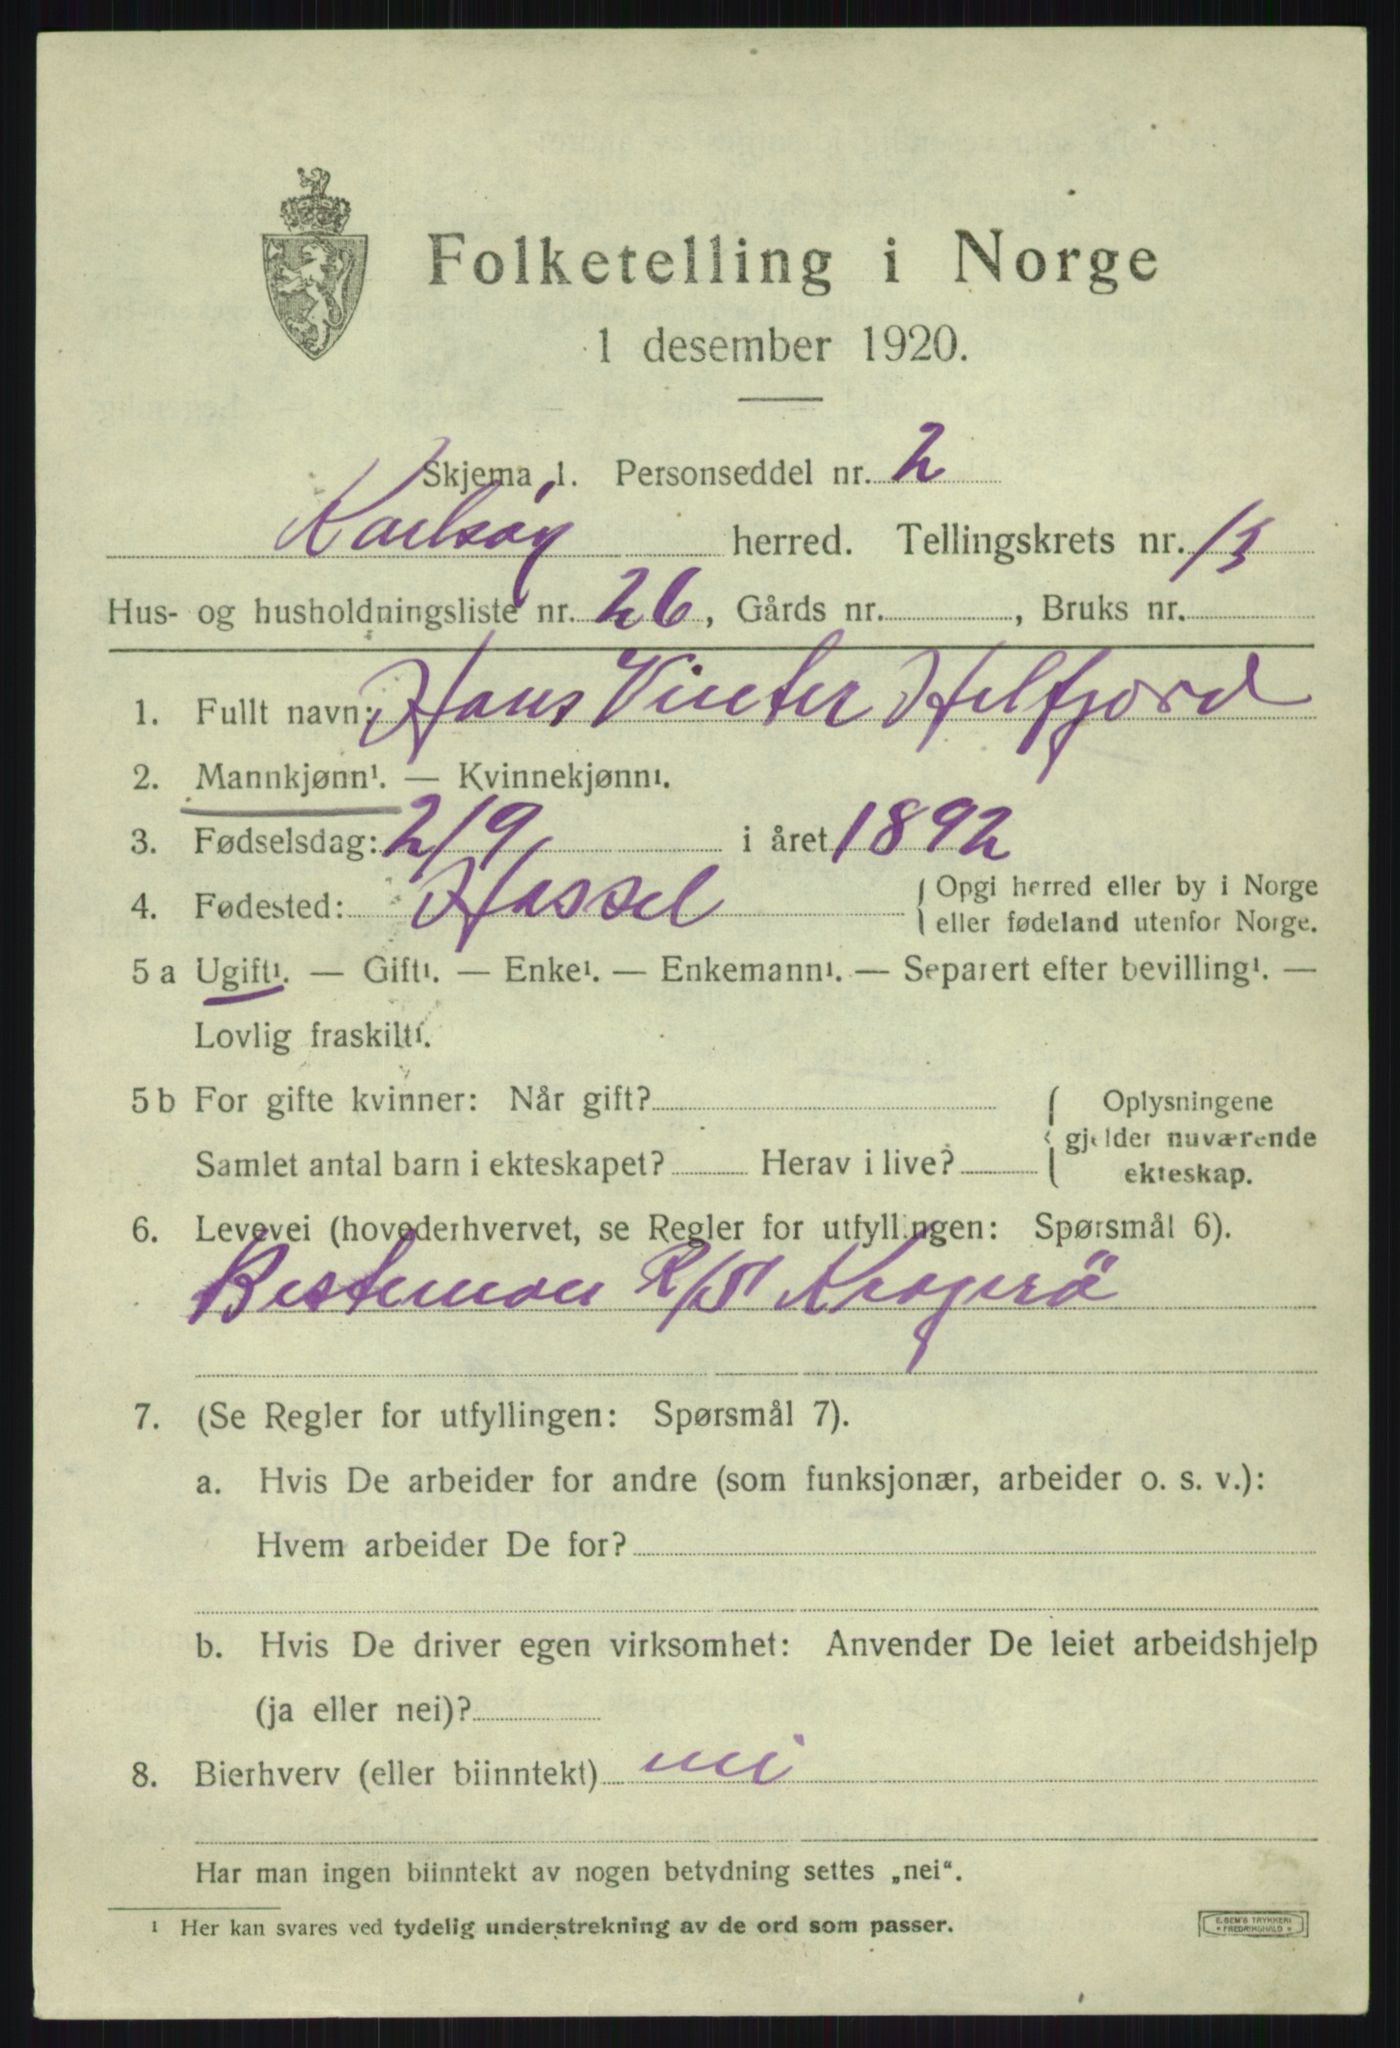 Folketelling i Norge
1 desember 1920.
Skjema 1. Personseddel nr. 2
Karlsøy herred. Tellingskrets nr. 13
Hus- og husholdningsliste nr. 26, Gårds nr. , Bruks nr.
1. Fullt navn: Hans Vinter Helfjord
2. Mannkjønn¹. — Kvinnekjønn¹.
3. Fødselsdag: 2/9 i året 1892
4. Fødested: Hassel { Opgi herred eller by i Norge
eller fødeland utenfor Norge.
5 a Ugift¹. — Gift¹. — Enke¹. — Enkemann¹. — Separert efter bevilling¹. —
Lovlig fraskilt¹.
5 b For gifte kvinner: Når gift? { Oplysningene
gjelder nuværende
Samlet antal barn i ekteskapet? Herav i live? ekteskap.
6. Levevei (hovederhvervet, se Regler for utfyllingen: Spørsmål 6).
Besteman R/S Kragerö
7. (Se Regler for utfyllingen: Spørsmål 7).
a. Hvis De arbeider for andre (som funksjonær, arbeider o. s. v.):
Hvem arbeider De for?
b. Hvis De driver egen virksomhet: Anvender De leiet arbeidshjelp
(ja eller nei)?
8. Bierhverv (eller biinntekt) nei
Har man ingen biinntekt av nogen betydning settes „nei“.
¹ Her kan svares ved tydelig understrekning av de ord som passer.
E. SEM'S TRYKKERI
FREDRIKSHALD